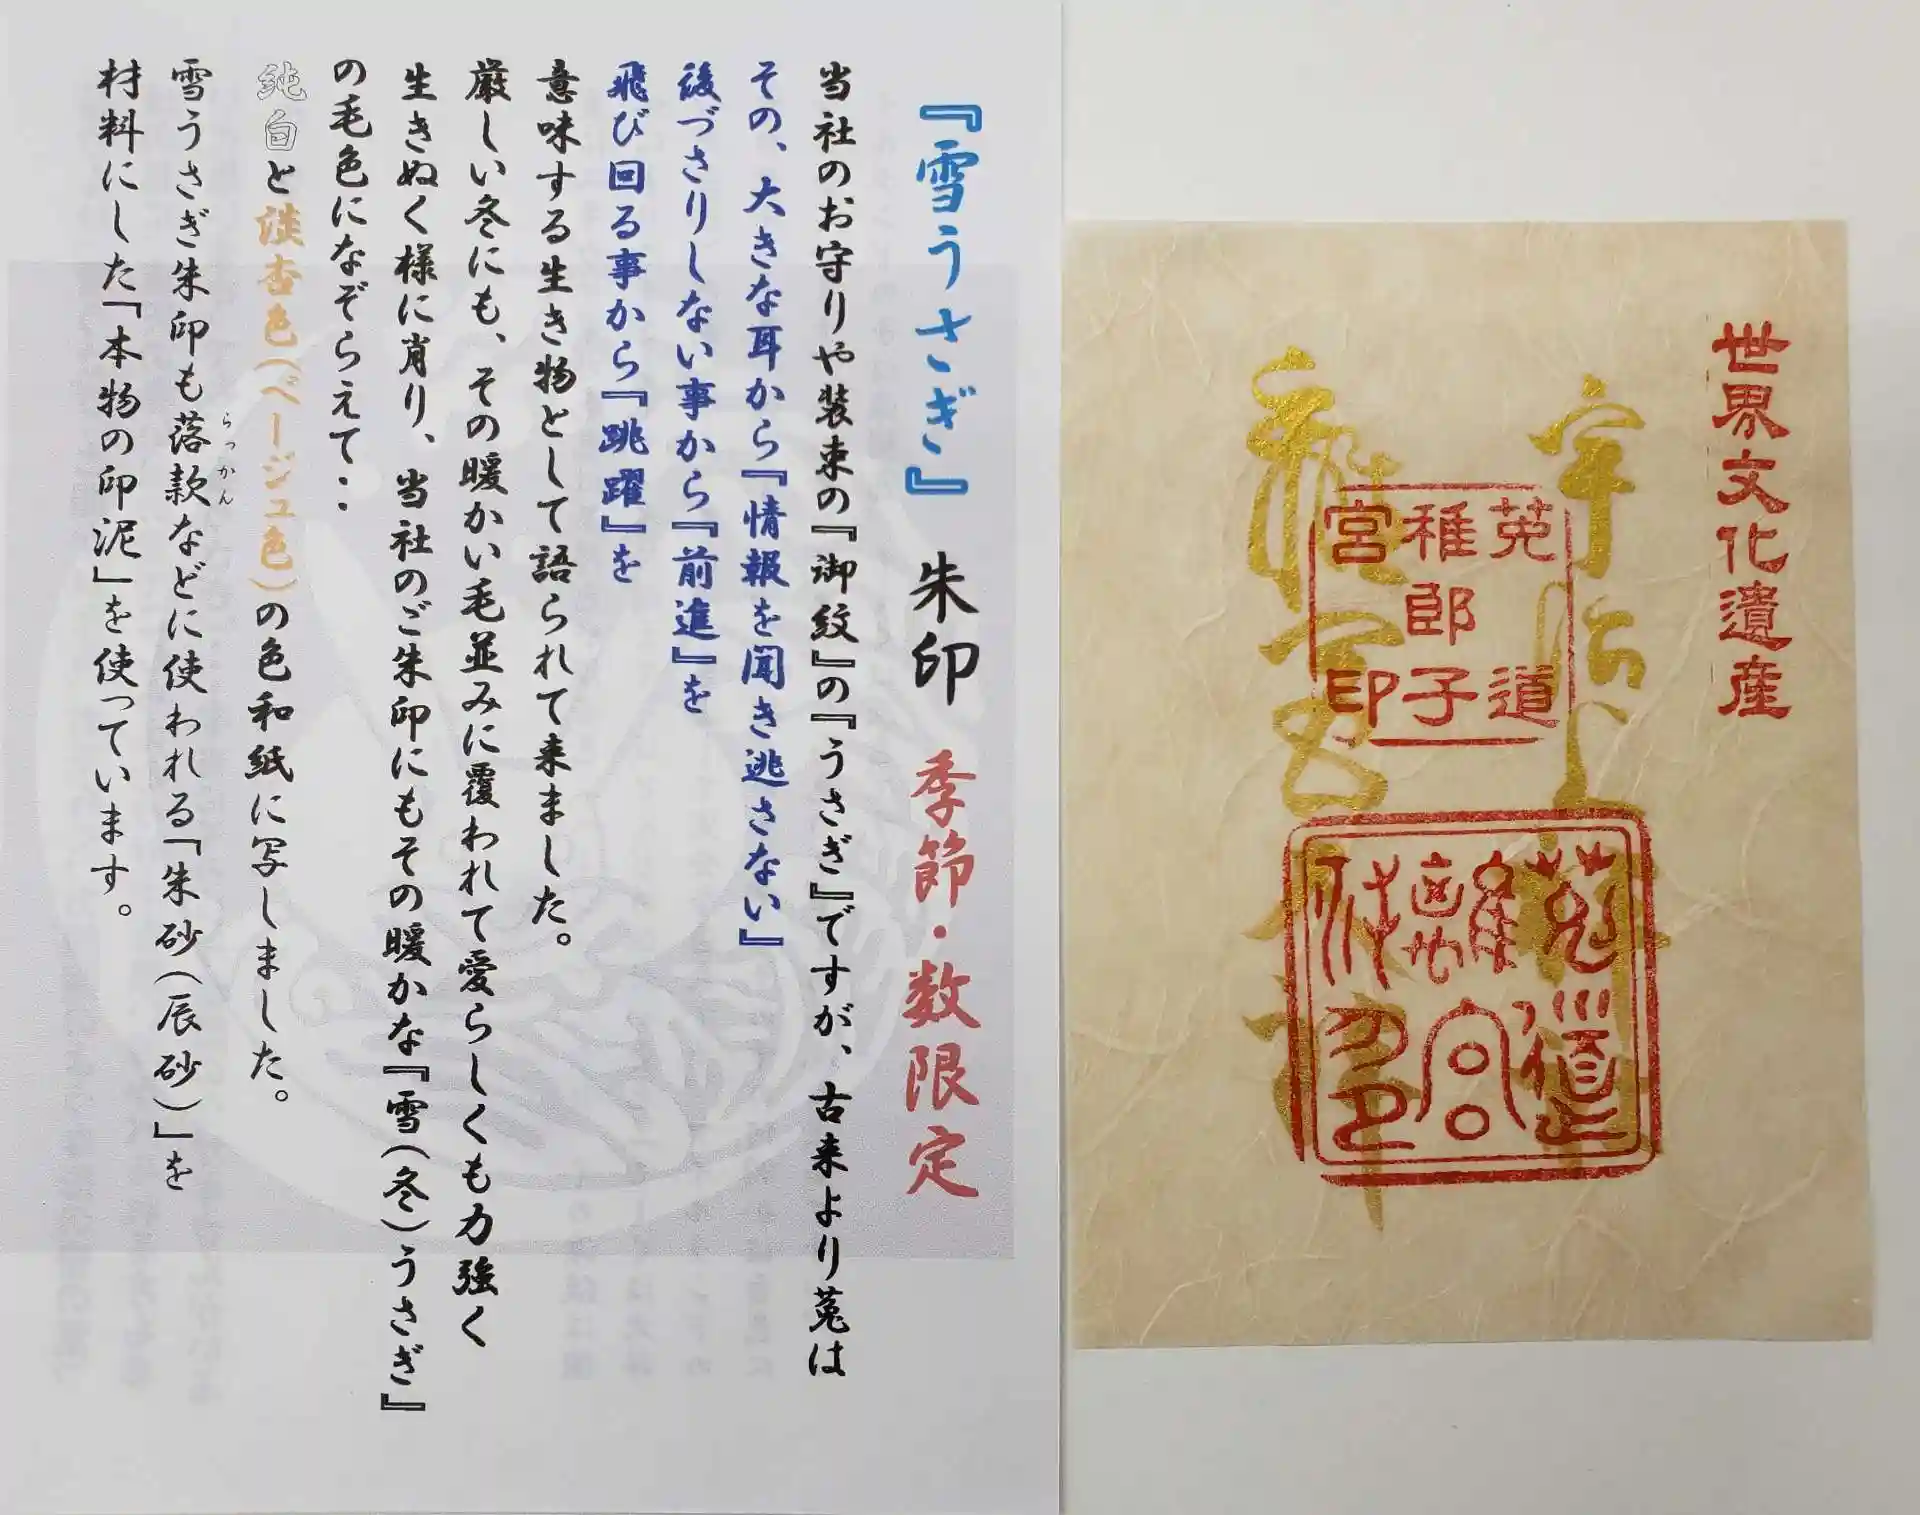 世界文化遺産
莵道
稚郎子
宮印
莵道
離宮
『雪うさぎ』 朱印 季節・数限定
当社のお守りや装束の『御紋』の『うさぎ』ですが、古来より莵は
その、大きな耳から『情報を聞き逃さない』
後づさりしない事から『前進』を
飛び回る事から『跳躍』を
意味する生き物として語られて来ました。
厳しい冬にも、その暖かい毛並みに覆われて愛らしくも力強く
生きぬく様に肖り、当社のご朱印にもその暖かな『雪(冬)うさぎ』
の毛色になぞらえて‥
純白と淡杏色(ベージュ色)の色和紙に写しました。
雪うさぎ朱印も落款などに使われる「朱砂(辰砂)」を
らっかん
材料にした「本物の印泥」を使っています。